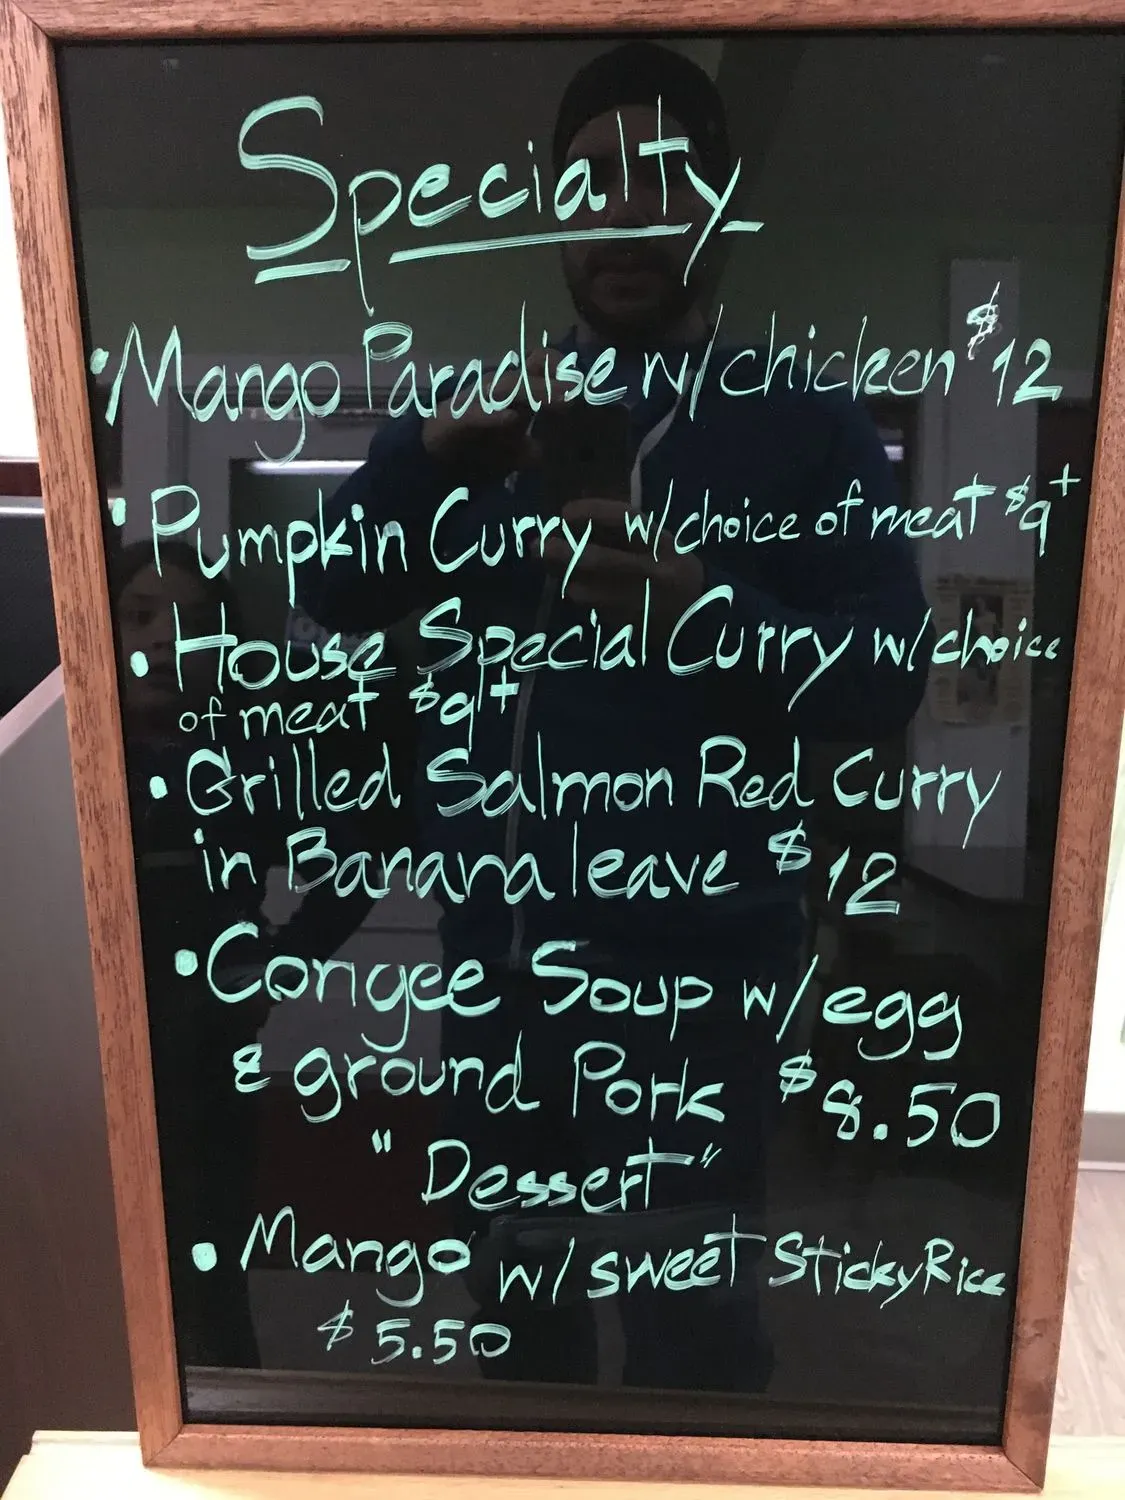 Specialty
• Mango Paradise w/ chicken $12
• Pumpkin Curry w/ choice of meat $9+
• House Special Curry w/ choice
of meat $9+
• Grilled Salmon Red Curry
in Banana leave $12
• Congee Soup w/ egg
& ground Pork $8.50
"Dessert"
• Mango w/ sweet Sticky Rice
$5.50